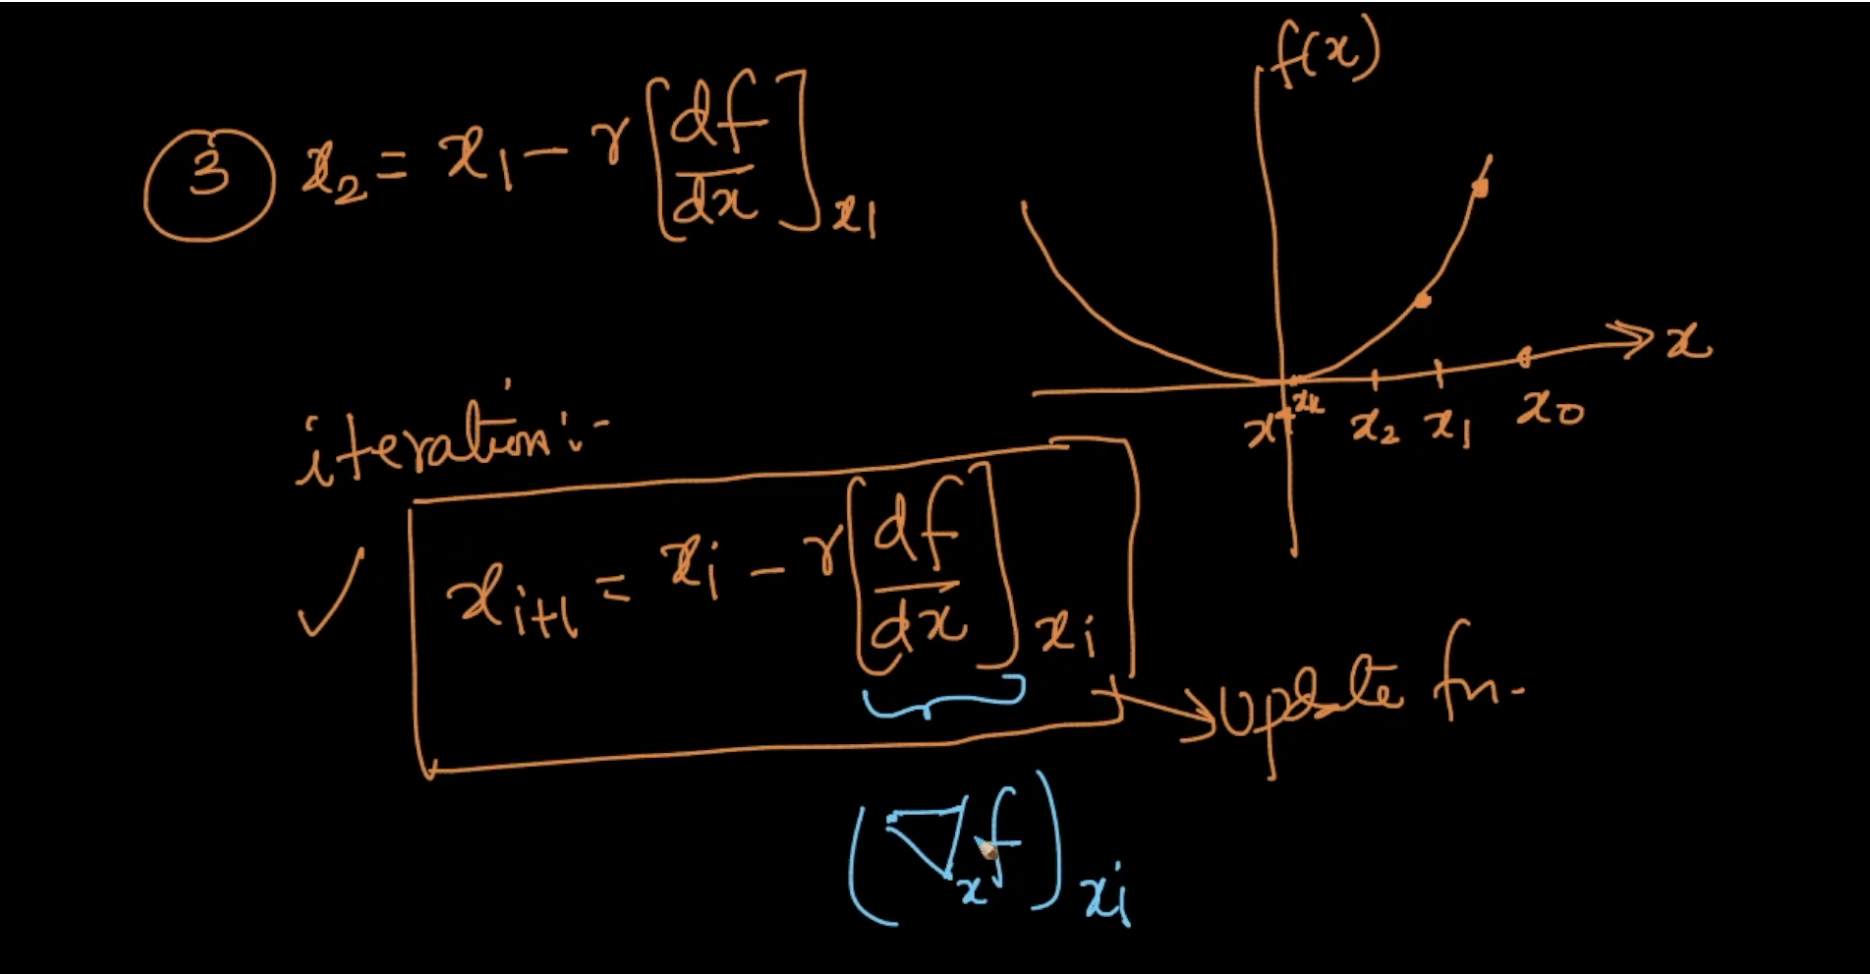 ③ x₂ = x₁ - r[df/dx]x₁
f(x)
x
x* xₖ x₂ x₁ x₀
iteration:-
✓ xᵢ₊₁ = xᵢ - r[df/dx]xᵢ
→ Update fn.
(∇ₓf)xᵢ